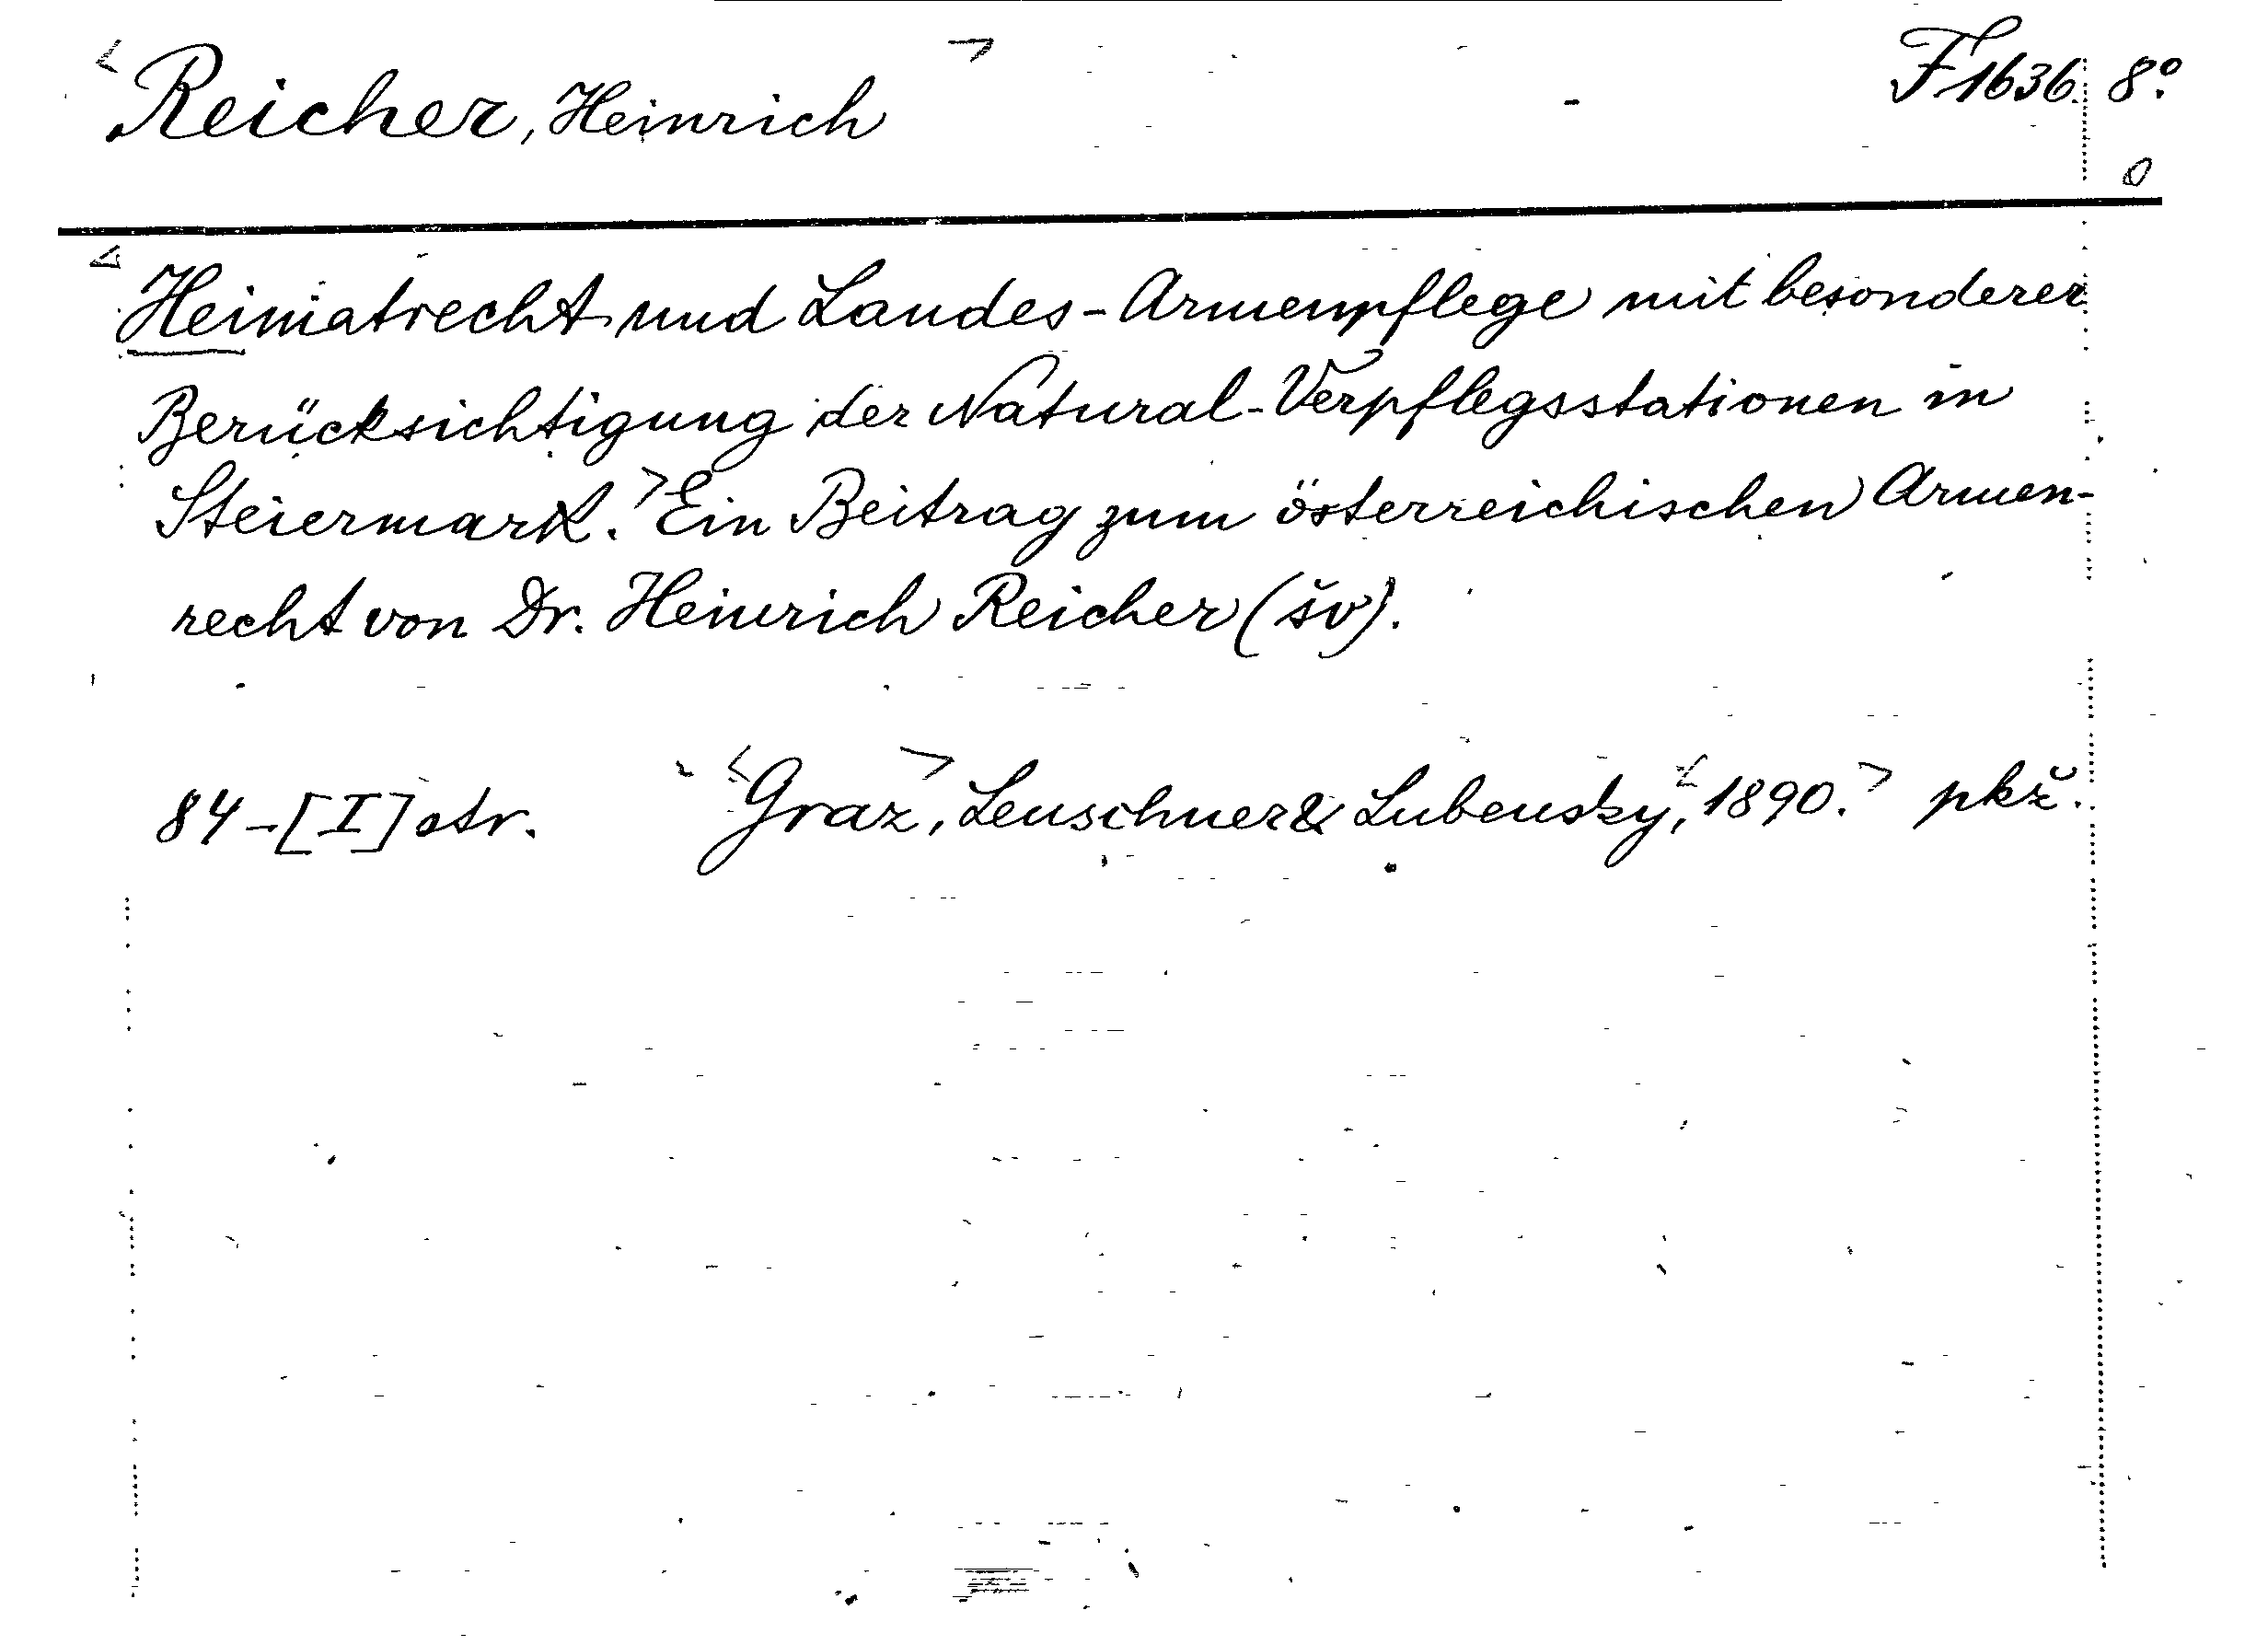 <Reicher, Heinrich> F 1636. 8°.
0
<Heimatrecht und Landes-Armenpflege mit besonderer
Berücksichtigung der Natural-Verpflegsstationen in
Steiermark.> Ein Beitrag zum österreichischen Armen-
recht von Dr. Heinrich Reicher (šv).
84-[I] str. <Graz>, Leuschner & Lubensky, <1890.> pkž.